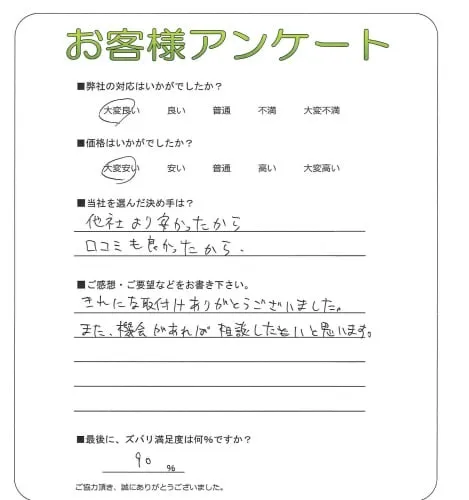 お客様アンケート
■弊社の対応はいかがでしたか？
大変良い 良い 普通 不満 大変不満
■価格はいかがでしたか？
大変安い 安い 普通 高い 大変高い
■当社を選んだ決め手は？
他社より安かったから
口コミも良かったから.
■ご感想・ご要望などをお書き下さい。
きれいな取付けありがとうございました。
また、機会があれば相談したいと思います。
■最後に、ズバリ満足度は何%ですか？
90 %
ご協力頂き、誠にありがとうございました。